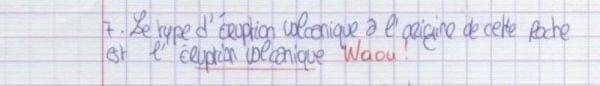 7. Le type d'éruption volcanique à l'origine de cette Roche
est l'éruption volcanique Waou!